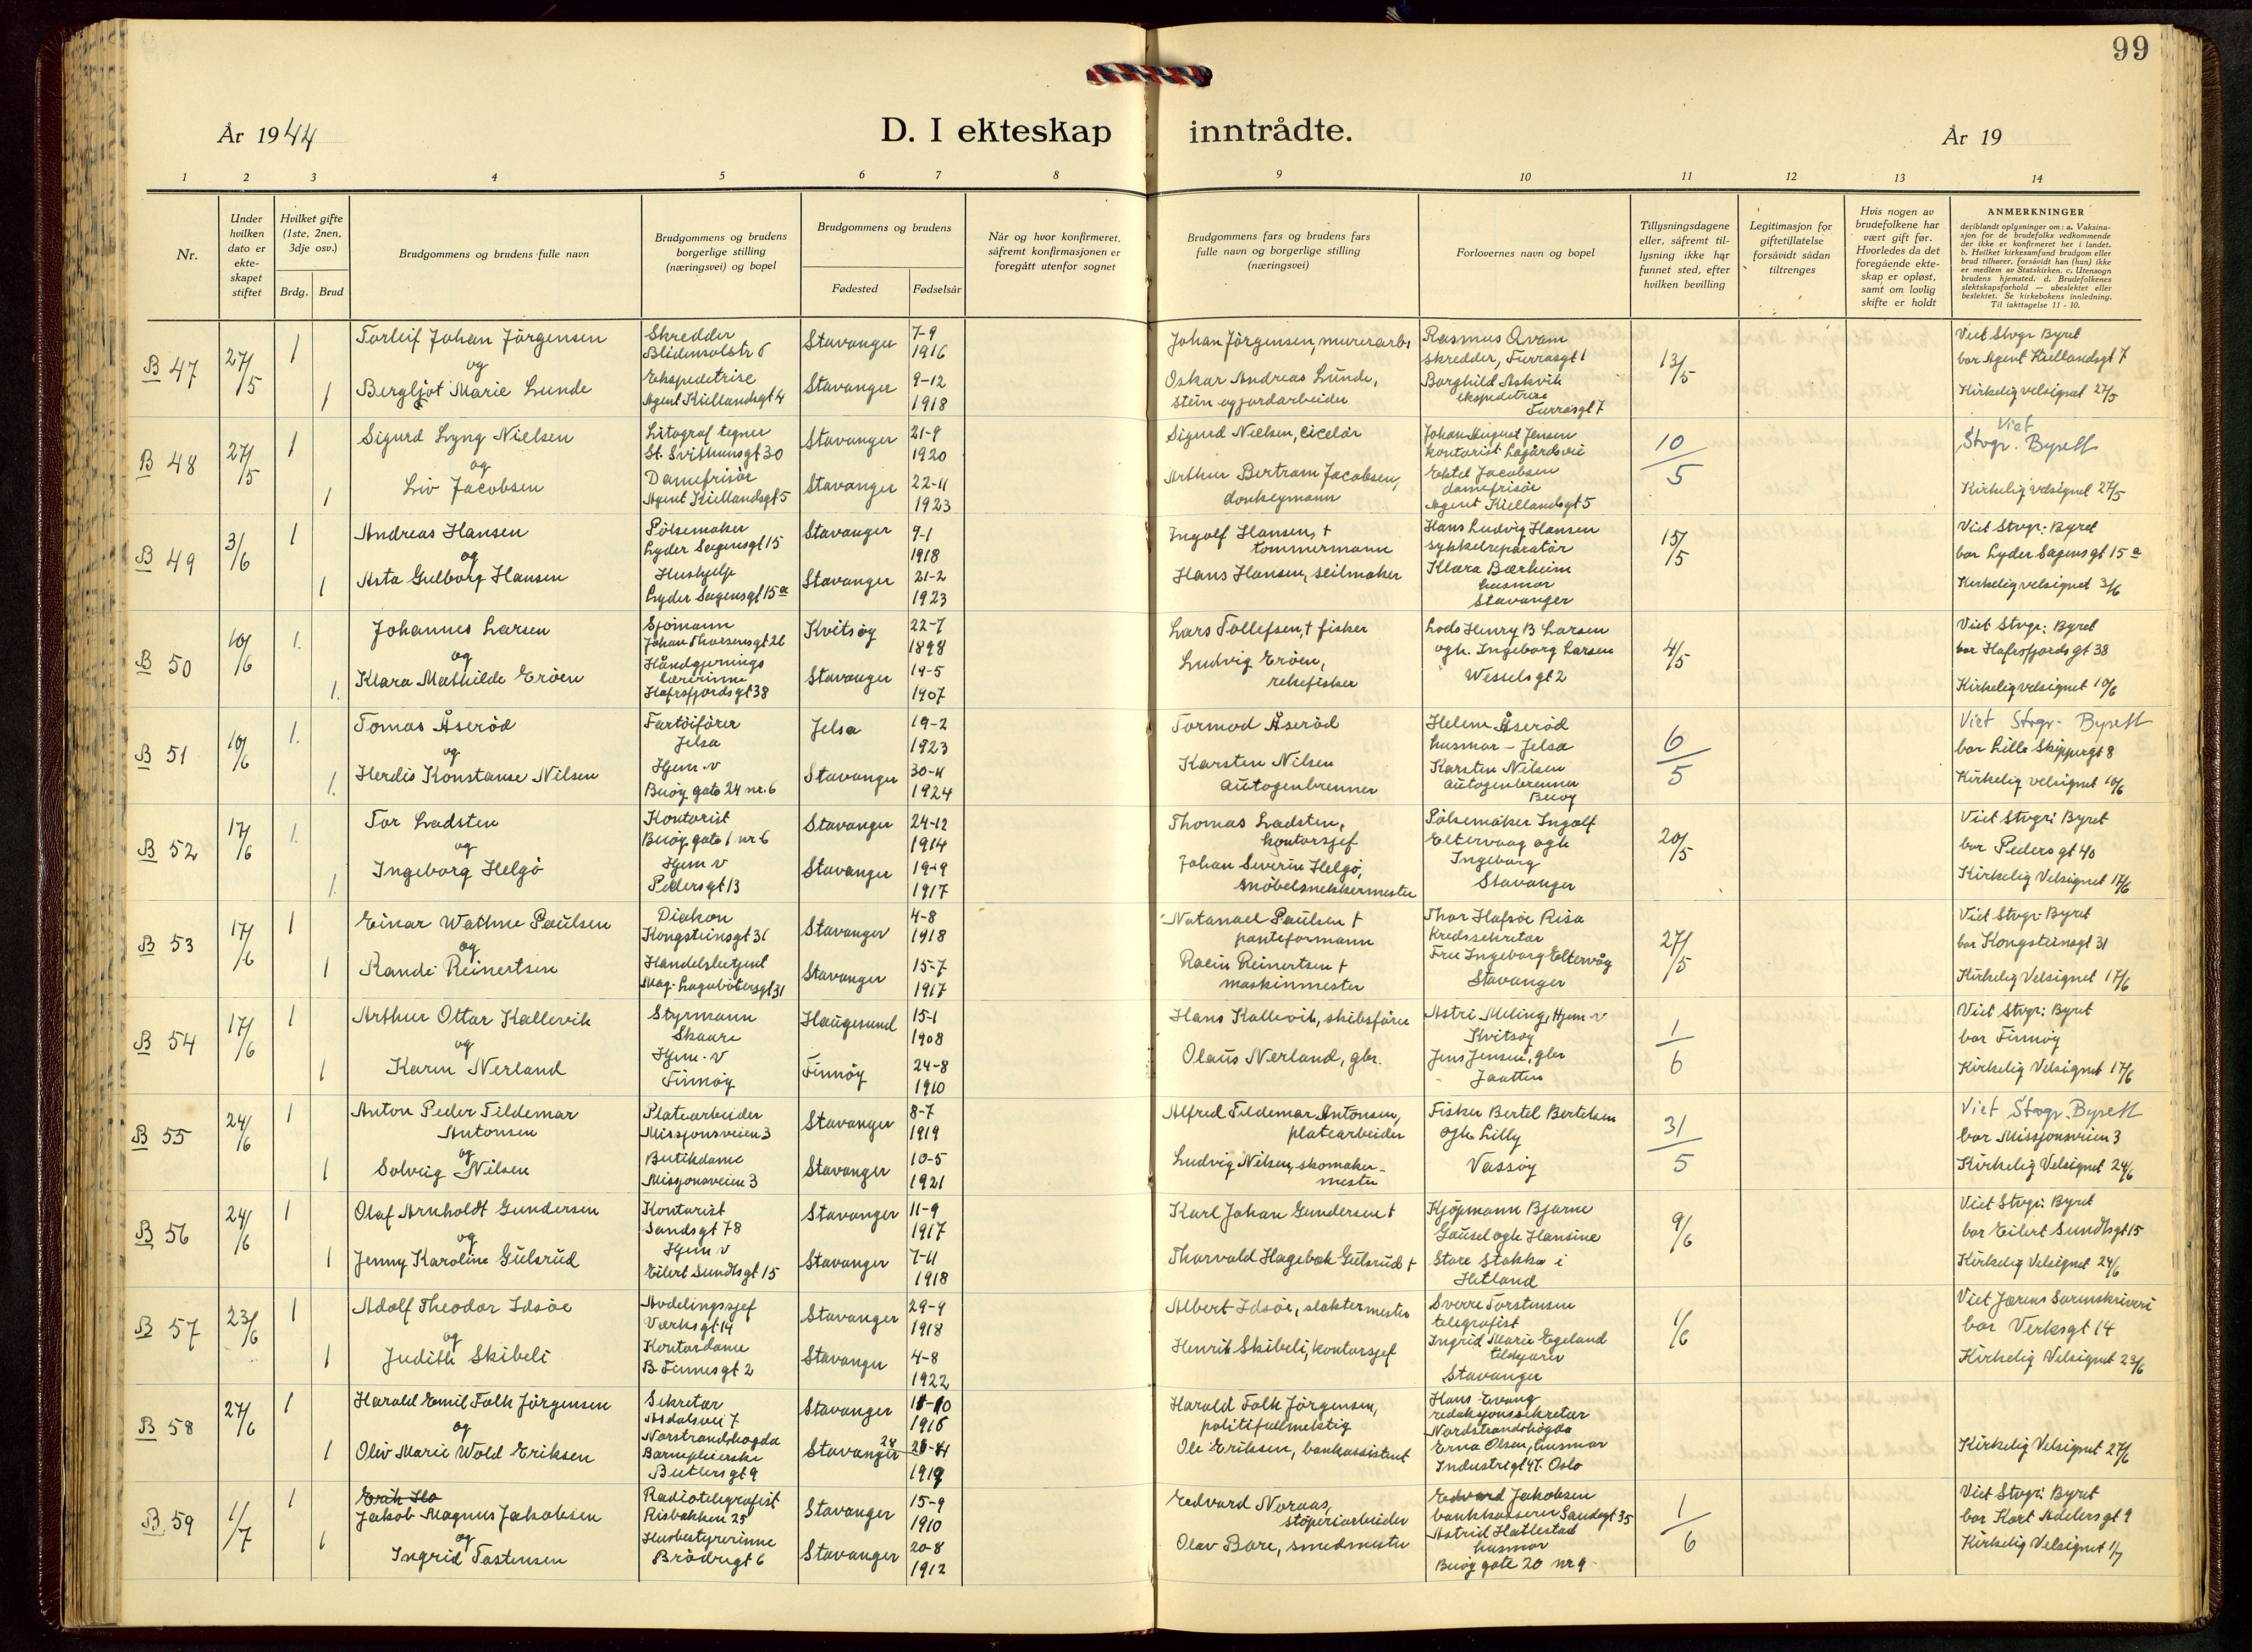 99
År 1944
D. I ekteskap inntrådte.
År 19
1 2 3 4 5 6 7 8 9 10 11 12 13 14
Nr.
Under hvilken dato er ekte-skapet stiftet
Hvilket gifte (1ste, 2nen, 3dje osv.)
Brdg. Brud
Brudgommens og brudens fulle navn
Brudgommens og brudens borgerlige stilling (næringsvei) og bopel
Brudgommens og brudens
Fødested Fødselsår
Når og hvor konfirmeret, såfremt konfirmasjonen er foregått utenfor sognet
Brudgommens fars og brudens fars fulle navn og borgerlige stilling (næringsvei)
Forlovernes navn og bopel
Tillysningsdagene eller, såfremt til-lysning ikke har funnet sted, efter hvilken bevilling
Legitimasjon for giftetillatelse forsåvidt sådan tiltrenges
Hvis nogen av brudefolkene har vært gift før. Hvorledes da det foregående ekte-skap er opløst, samt om lovlig skifte er holdt
ANMERKNINGER
deriblandt oplysninger om: a. Vaksina-sjon for de brudefolks vedkommende der ikke er konfirmeret her i landet. b. Hvilket kirkesamfund brudgom eller brud tilhører, forsåvidt han (hun) ikke er medlem av Statskirken. c. Utensogn brudens hjemsted. d. Brudefolkenes slektskapsforhold — ubeslektet eller beslektet. Se kirkebokens innledning. Til iakttagelse 11 - 10.
B 47 27/5 1 Torleif Johan Jörgensen Skredder Blidensolstr 6 Stavanger 7-9 1916 Johan Jörgensen, murerarb. Rasmus Qvam skredder, Furrasgt 1 13/5 Viet Stvgr Byret
og
1 Bergljot Marie Lunde Ekspeditrise Agent Kiellandsgt 4 Stavanger 9-12 1918 Oskar Andreas Lunde, stein og jordarbeider Borghild Askvik ekspeditrise Furrasgt 7 bor Agent Kiellandsgt 7 Kirkelig velsignet 27/5
B 48 27/5 1 Sigurd Lyng Nielsen Litograf tegner St. Svithunsgt 30 Stavanger 21-9 1920 Sigurd Nielsen, Johan August Jensen kontorist Lagårdsvei 10/5 Viet Stvgr. Byrett
og
1 Liv Jacobsen Damefrisör Agent Kiellandsgt 5 Stavanger 22-11 1923 Arthur Bertram Jacobsen, donkeymann Jacobsen damefrisör Agent Kiellandsgt 5 Kirkelig velsignet 27/5
B 49 3/6 1 Andreas Hansen Pölsemaker Lyder Sagensgt 15 Stavanger 9-1 1918 Ingolf Hansen, † tømmermann Hans Ludvig Hansen sykkelreparatör 15/5 Viet Stvgr. Byret
og
1 Asta Gulborg Hansen Hushjelp Lyder Sagensgt 15a Stavanger 21-2 1923 Hans Hansen, seilmaker Klara Bærheim husmor Stavanger bor Lyder Sagensgt 15a Kirkelig velsignet 3/6
B 50 10/6 1. Johannes Larsen Sjömann Johan Thorsensgt 26 Kvitsøy 22-7 1898 Lars Tollefsen, † fisker Lods Henry B Larsen ogh. Ingeborg Larsen Wesselsgt 2 4/5 Viet Stvgr: Byret
og
1. Klara Mathilde Eröen Håndgjerningslærerinne Hafrsfjordsgt 38 Stavanger 19-5 1907 Ludvig Eröen, rekefisker bor Hafrsfjordsgt 38 Kirkelig velsignet 10/6
B 51 10/6 1. Tomas Åseröd Fartöiförer Jelsa Jelsa 19-2 1923 Tormod Åseröd Helene Åseröd husmor - Jelsa 6/5 Viet Stvgr- Byrett
og
1. Herdis Konstanse Nilsen Hjem.v Buøy gate 24 nr. 6 Stavanger 30-11 1924 Karsten Nilsen Autogenbrenner Karsten Nilsen Autogenbrenner Buoy bor Lille Skippergt 8 Kirkelig velsignet 10/6
B 52 17/6 1. Tor Ladsten Kontorist Buøy gate 1 nr 6 Stavanger 24-12 1914 Thomas Ladsten, kontorsjef Pölsemaker Ingolf Eltervaag ogh Ingeborg Stavanger 20/5 Viet Stvgr: Byret
og
1. Ingeborg Helgö Hjem v Pedersgt 13 Stavanger 19-9 1917 Johan Severin Helgö, möbelsnekkermester bor Pedersgt 40 Kirkelig Velsignet 17/6
B 53 17/6 1 Einar Wathne Paulsen Diakon Kongsteinsgt 31 Stavanger 4-8 1918 Natanael Paulsen † Thor Hafsöe Risa Kredssekretær 27/5 Viet Stvgr. Byret
og
1 Randi Reinertsen Handelsbetjent Mag. Lagabötersgt 31 Stavanger 15-7 1917 Reinertsen † maskinmester Fru Ingeborg Eltervåg Stavanger bor Kongsteinsgt 31 Kirkelig Velsignet 17/6
B 54 17/6 1 Arthur Ottar Kallevik Styrmann Skaare Haugesund 15-1 1908 Hans Kallevik, skibsförer Astri Meling, Hjem v Kvitsøy 1/6 Viet Stvgr: Byret
og
1 Karen Nerland Hjem. v Finnøy Finnøy 24-8 1910 Olaus Nerland, gbr. Jens Jensen, gbr Jaatten bor Finnøy Kirkelig Velsignet 17/6
B 55 24/6 1 Anton Peder Tildemar Antonsen Platearbeider Missjonsveien 3 Stavanger 8-7 1919 Alfred Tildemar Antonsen, platearbeider Fisker Bertel Bertelsen ogh Lilly Vassøy 31/5 Viet Stvgr. Byrett
og
1 Solveig Nilsen Butikdame Misjonsveien 3 Stavanger 10-5 1921 Ludvig Nilsen, skomaker-mester bor Missjonsveien 3 Kirkelig Velsignet 24/6
B 56 24/6 1 Olaf Arnholdt Gundersen Kontorist Sandsgt 78 Stavanger 11-9 1917 Karl Johan Gundersen † Kjöpmann Bjarne Gausel ogh Hansine Store Stokka i Hetland 9/6 Viet Stvgr: Byret
og
1 Jenny Karoline Gulsrud Hjem v Eilert Sundtsgt 15 Stavanger 7-11 1918 Thorvald Hagebak Gulsrud † bor Eilert Sundtsgt 15 Kirkelig Velsignet 24/6
B 57 23/6 1 Adolf Theodor Idsöe Avdelingssjef Værksgt 14 Stavanger 29-9 1918 Albert Idsöe, slaktermester Sverre Torstensen telegrafist 1/6 Viet Jærens Sorenskriveri
og
1 Judith Skibeli Kontordame B Finnesgt 2 Stavanger 4-8 1922 Henrik Skibeli, kontorsjef Ingrid Marie Egeland Stavanger bor Verksgt 14 Kirkelig Velsignet 23/6
B 58 27/6 1 Harald Emil Falk Jörgensen Sekretær 7 Norstrandshøgda Stavanger 1916 Harald Falk Jörgensen, politifullmektig Hans Evang redaksjonssekretær Nordstrandshögda
og
1 Oliv Marie Wold Eriksen Barnepleierske Butlersgt 9 Stavanger 28 1919 Ole Eriksen, bankassistent Erna Olsen, husmor Industrigt 47. Oslo Kirkelig Velsignet 27/6
B 59 1/7 1 Jakob Magnus Jakobsen Radiotelegrafist Risbakken 25 Stavanger 15-9 1910 Edvard Noraas, stöperiarbeider Edvard Jakobsen bankkasserer Sandsgt 35 1/6 Viet Stvgr: Byret
og
1 Ingrid Tostensen Husbestyrerinne Brödregt 6 Stavanger 20-8 1912 Olav Bore, smedmester Astrid Hatlestad husmor Buøy gate 20 nr 9 bor Kort Adelersgt 9 Kirkelig Velsignet 1/7